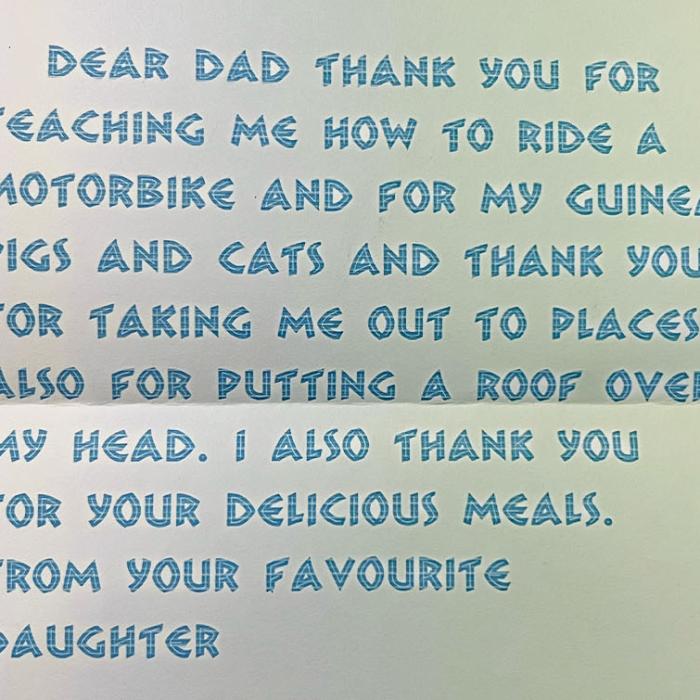 DEAR DAD THANK YOU FOR
TEACHING ME HOW TO RIDE A
MOTORBIKE AND FOR MY GUINEA
PIGS AND CATS AND THANK YOU
FOR TAKING ME OUT TO PLACES
ALSO FOR PUTTING A ROOF OVER
MY HEAD. I ALSO THANK YOU
FOR YOUR DELICIOUS MEALS.
FROM YOUR FAVOURITE
DAUGHTER